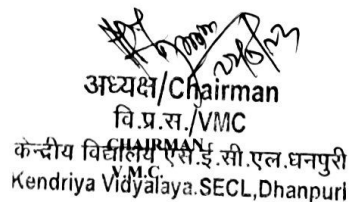 अध्यक्ष/Chairman
वि.प्र.स./VMC
CHAIRMAN
केन्द्रीय विद्यालय एस.ई.सी.एल.धनपुरी
V.M.C.
Kendriya Vidyalaya.SECL,Dhanpuri